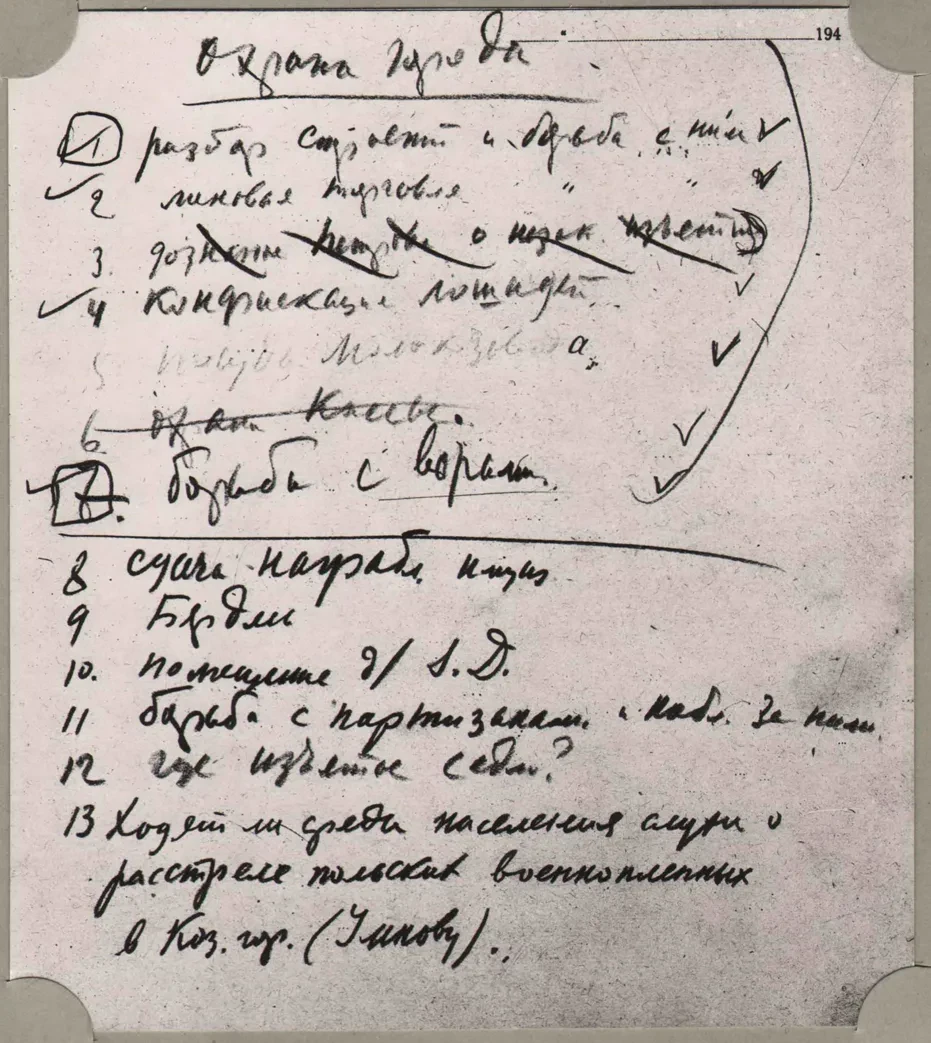 194
Охрана города
1 разбор строений и борьба с ним
2 меновая торговля " "
3. дознание о незак. изъятии
4 Конфискация лошадей
5 а
6. охран
17. борьба с ворами.
8 сдача награбл. вещей
9
10. помещение д/ S.D.
11 борьба с партизанами и набл. за ними
12 где изъятые седла?
13 Ходят ли среди населения слухи о
расстреле польских военнопленных
в Коз. гор. (Умнову).